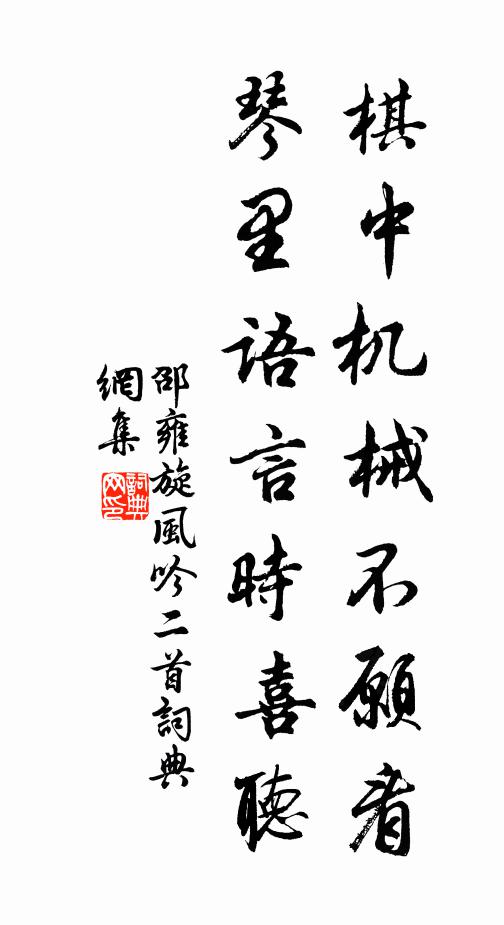 棋中机械不願看
琴里语言時喜聴
邵雍旋風吟二首詞典
網集
詞典网印